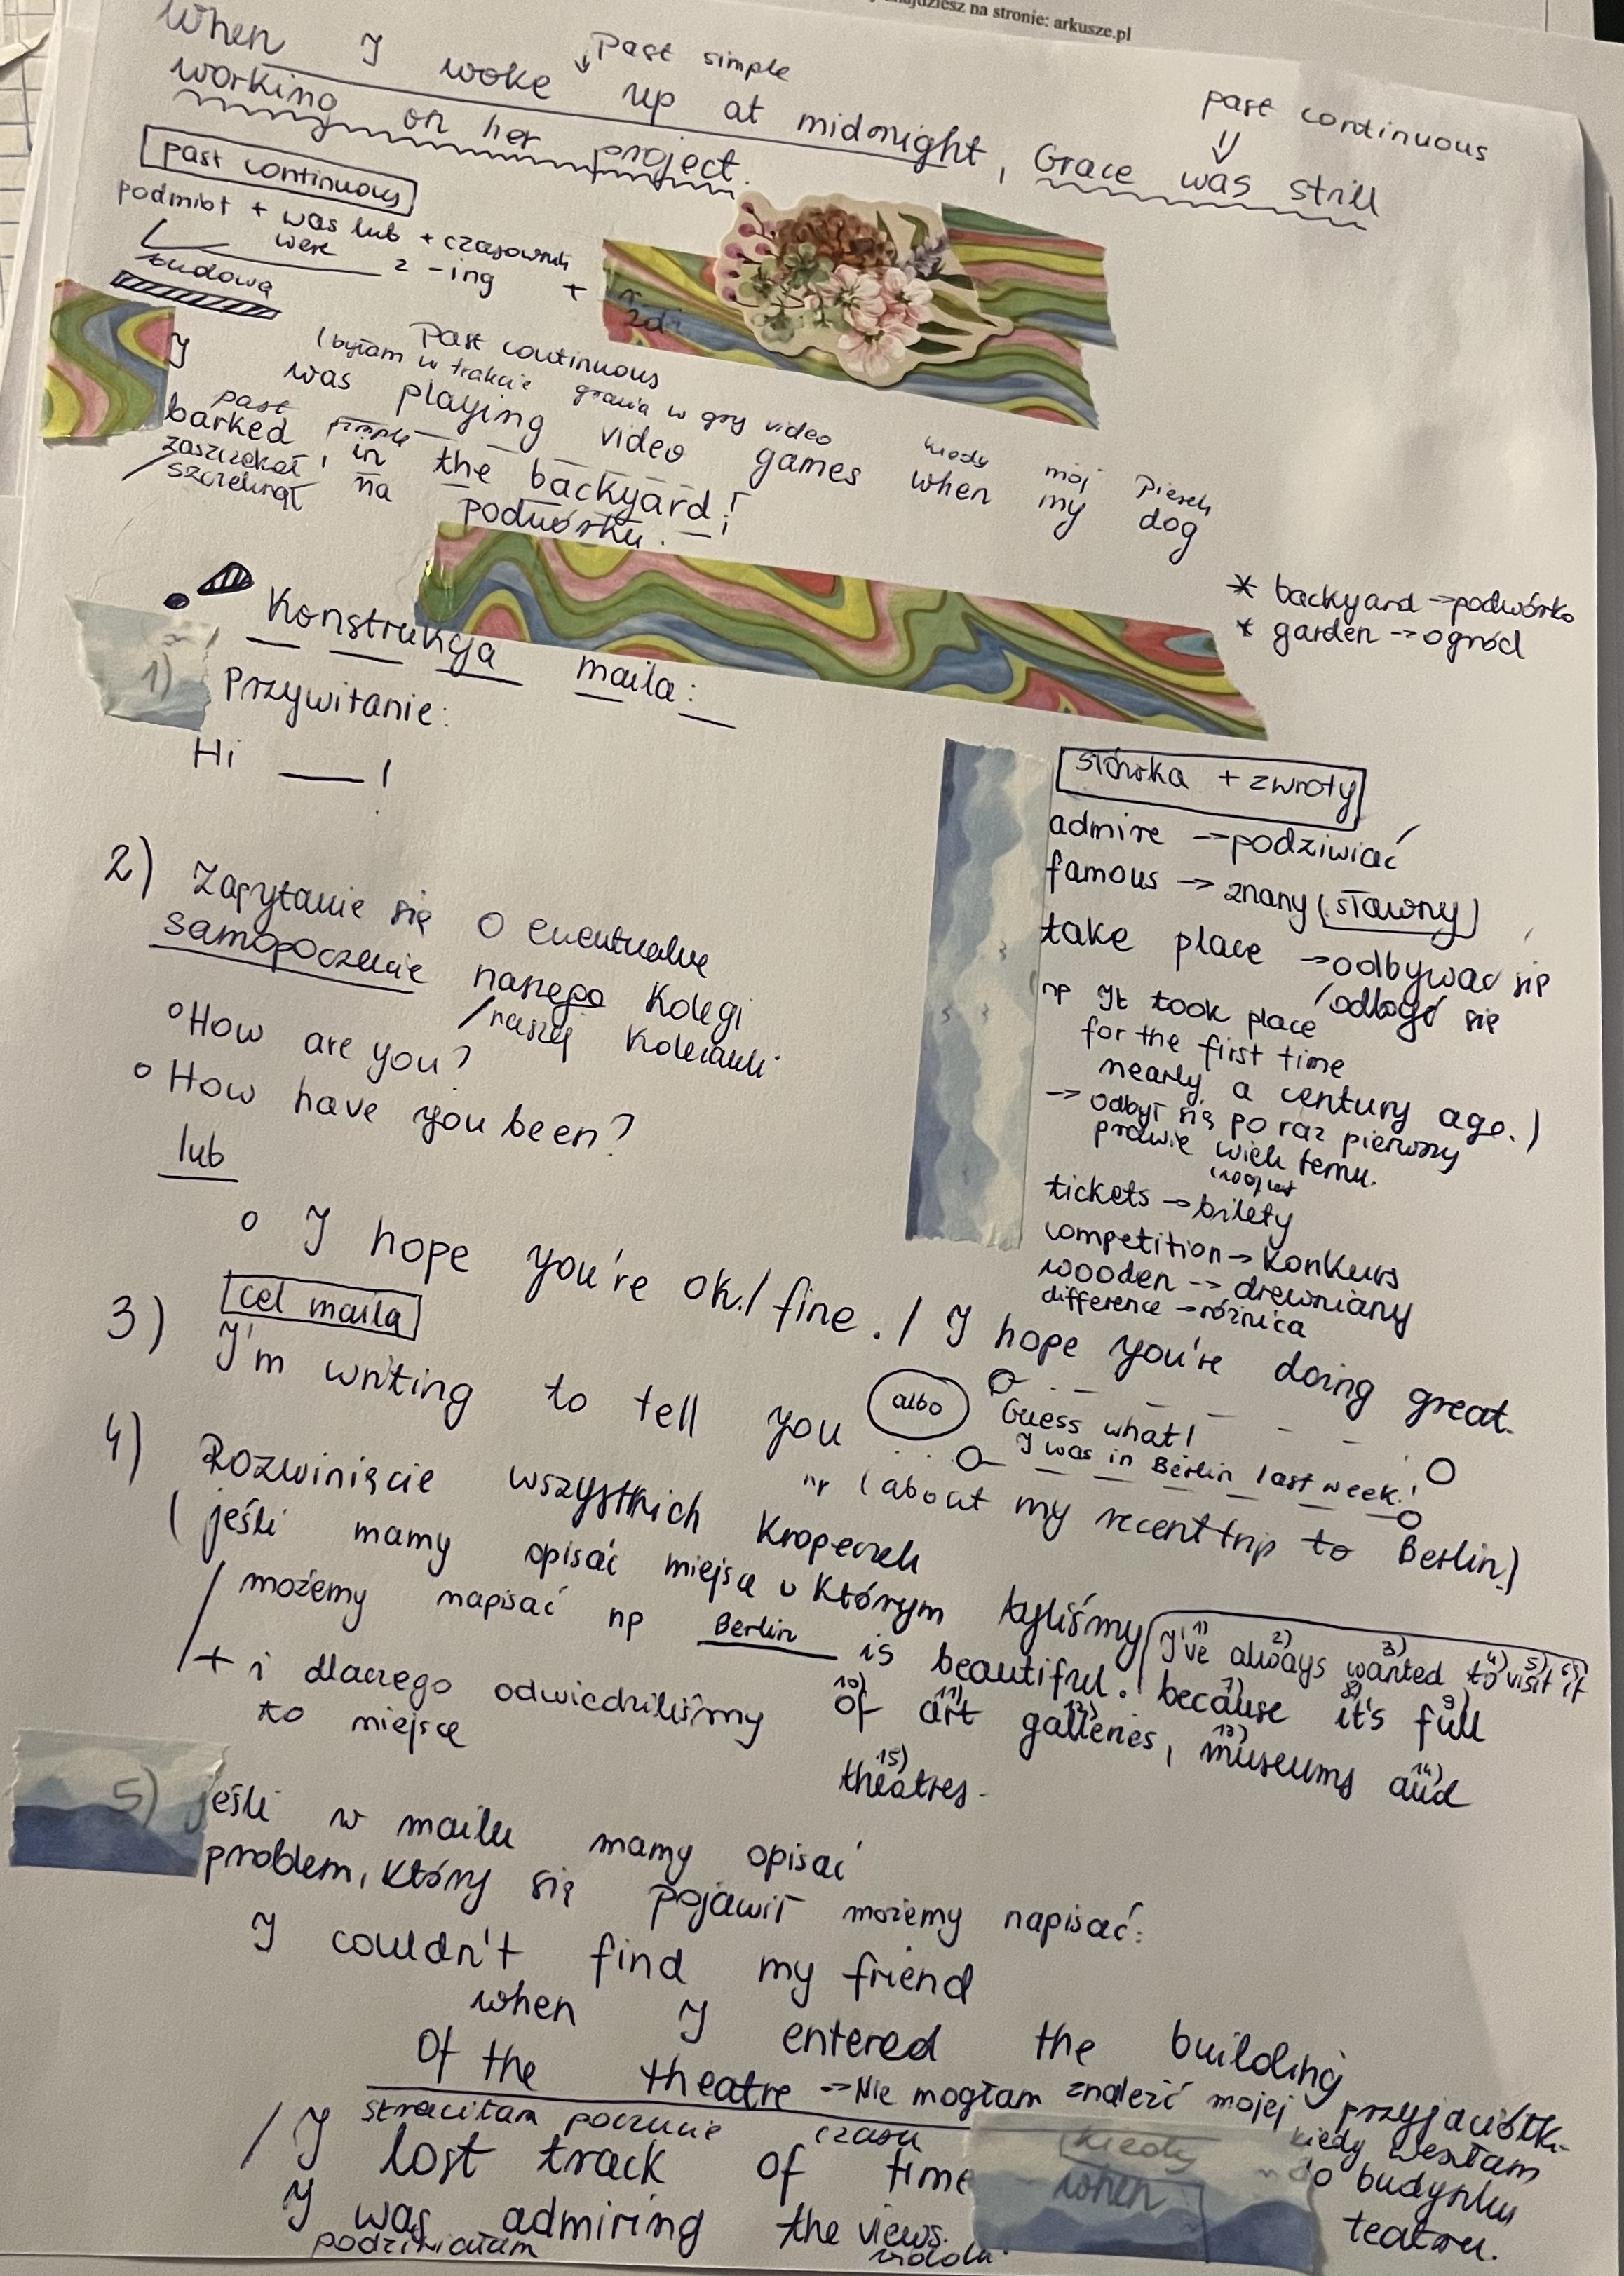 znajdziesz na stronie: arkusze.pl
Past simple
When I woke up at midnight, Grace was still
past continuous
working on her project.
past continuous
podmiot + was lub + czasownik
were z -ing +
budowa
Past continuous
(byłam w trakcie grania w gry video kiedy mój piesek
I was playing video games when my dog
past simple
barked in the backyard!
zaszczekał na podwórku.
/szczeknął
* backyard → podwórko
* garden → ogród
Konstrukcja maila:
1) Przywitanie:
Hi ___!
2) Zapytanie się o ewentualne
samopoczucie naszego kolegi
/naszej koleżanki
° How are you?
° How have you been?
lub
° I hope you're ok./fine. / I hope you're doing great.
słówka + zwroty
admire → podziwiać
famous → znany (sławny)
take place → odbywać się
/odbyć się
np It took place
for the first time
nearly a century ago.)
→ odbył się po raz pierwszy
prawie wiek temu.
tickets → bilety
competition → konkurs
wooden → drewniany
difference → różnica
3) cel maila
I'm writing to tell you albo Guess what!
I was in Berlin last week!
np (about my recent trip to Berlin.)
4) Rozwinięcie wszystkich kropeczek
(jeśli mamy opisać miejsce w którym byliśmy
/możemy napisać np Berlin is beautiful. I've always wanted to visit it
1) 2) 3) 4) 5) 6)
+ i dlaczego odwiedziliśmy because it's full
7) 8) 9)
to miejsce of art galleries, museums and
10) 11) 12) 13) 14)
theatres.
15)
5) jeśli w mailu mamy opisać
problem, który się pojawił możemy napisać:
I couldn't find my friend
when I entered the building
of the theatre → Nie mogłam znaleźć mojej przyjaciółki
kiedy weszłam
do budynku
teatru.
straciłam poczucie czasu kiedy
/ I lost track of time when
I was admiring the views.
podziwiałam